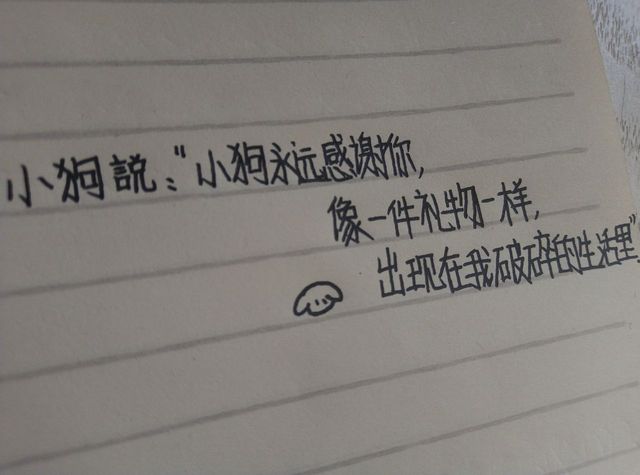 小狗説："小狗永远感谢你,
像一件礼物一样,
出现在我破碎的生活里"